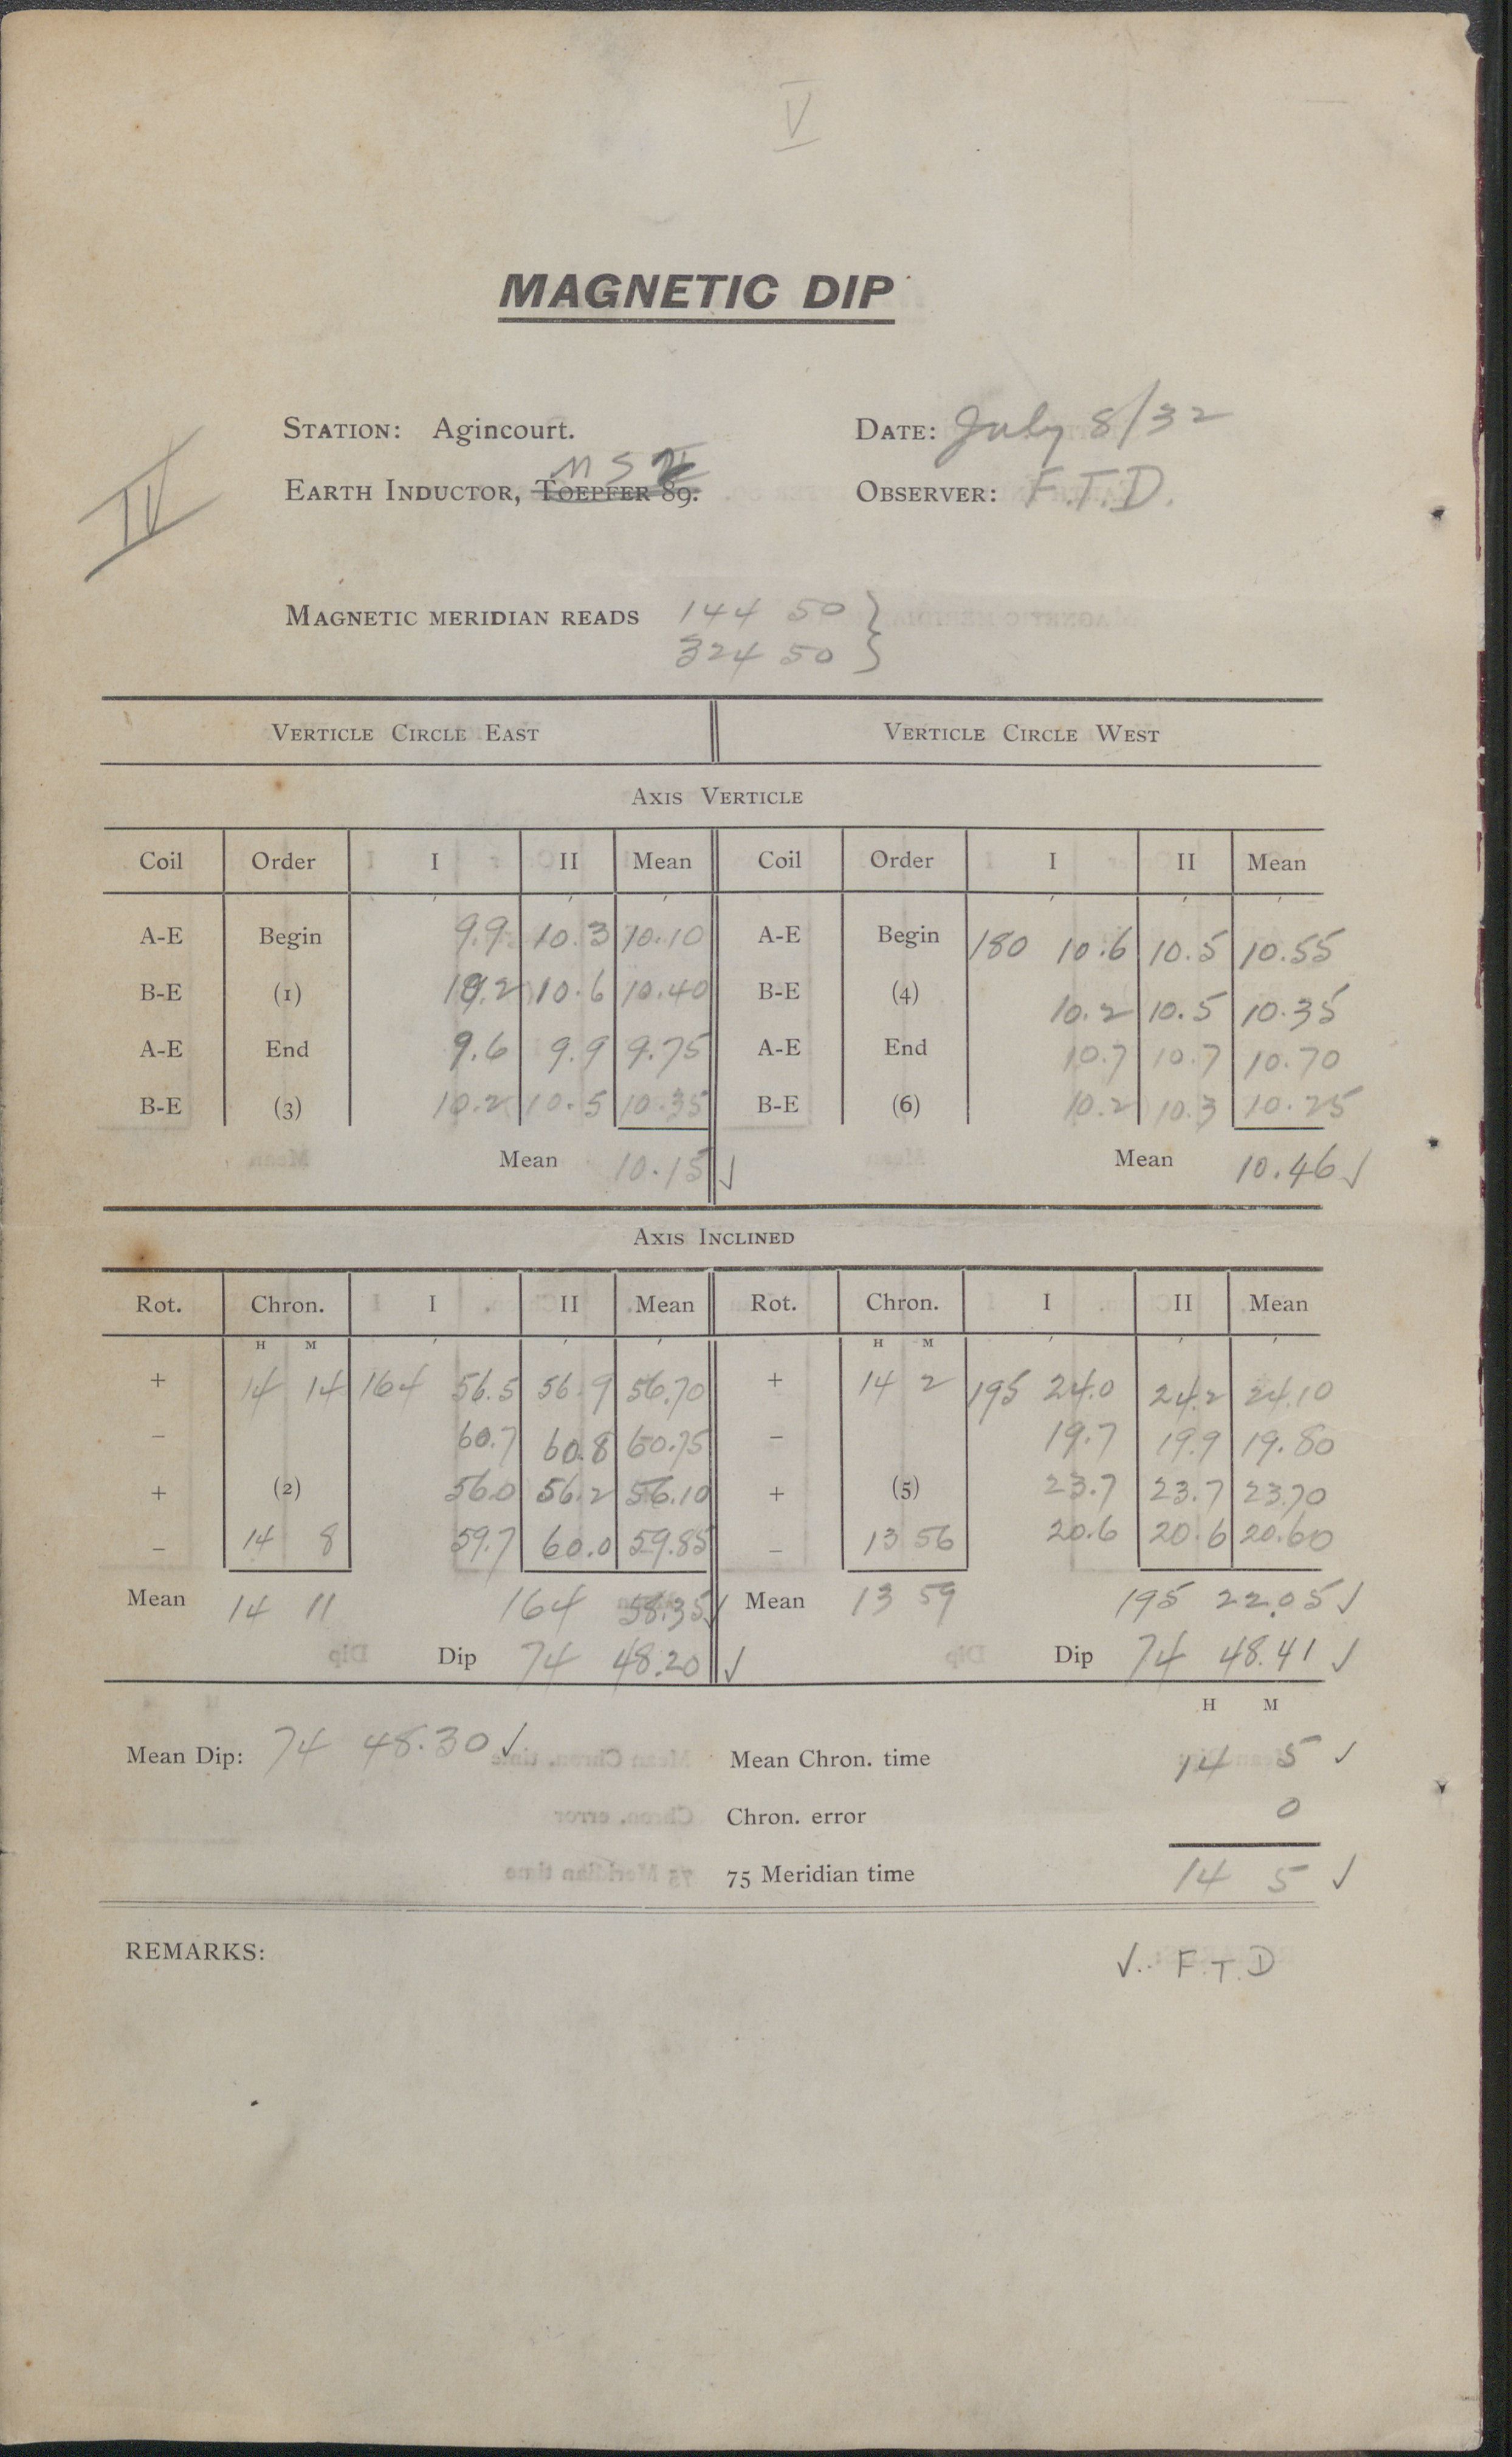 V
MAGNETIC DIP
IV
STATION: Agincourt. DATE: July 8/32
EARTH INDUCTOR, TOEPFER 89. M S OBSERVER: F.T.D.
MAGNETIC MERIDIAN READS 144 50 }
324 50 }
VERTICLE CIRCLE EAST VERTICLE CIRCLE WEST
AXIS VERTICLE
Coil Order I II Mean Coil Order I II Mean
A-E Begin 9.9 10.3 10.10 A-E Begin 180 10.6 10.5 10.55
B-E (1) 10.2 10.6 10.40 B-E (4) 10.2 10.5 10.35
A-E End 9.6 9.9 9.75 A-E End 10.7 10.7 10.70
B-E (3) 10.2 10.5 10.35 B-E (6) 10.2 10.3 10.25
Mean 10.15 ✓ Mean 10.46 ✓
AXIS INCLINED
Rot. Chron. I II Mean Rot. Chron. I II Mean
H M ' ' ' H M ' ' '
+ 14 14 164 56.5 56.9 56.70 + 14 2 195 24.0 24.2 24.10
− 60.7 60.8 60.75 − 19.7 19.9 19.80
+ (2) 56.0 56.2 56.10 + (5) 23.7 23.7 23.70
− 14 8 59.7 60.0 59.85 − 13 56 20.6 20.6 20.60
Mean 14 11 164 58.35 ✓ Mean 13 59 195 22.05 ✓
Dip 74 48.20 ✓ Dip 74 48.41 ✓
H M
Mean Dip: 74 48.30 ✓ Mean Chron. time 14 5 ✓
Chron. error 0
75 Meridian time 14 5 ✓
REMARKS: ✓.. F.T.D